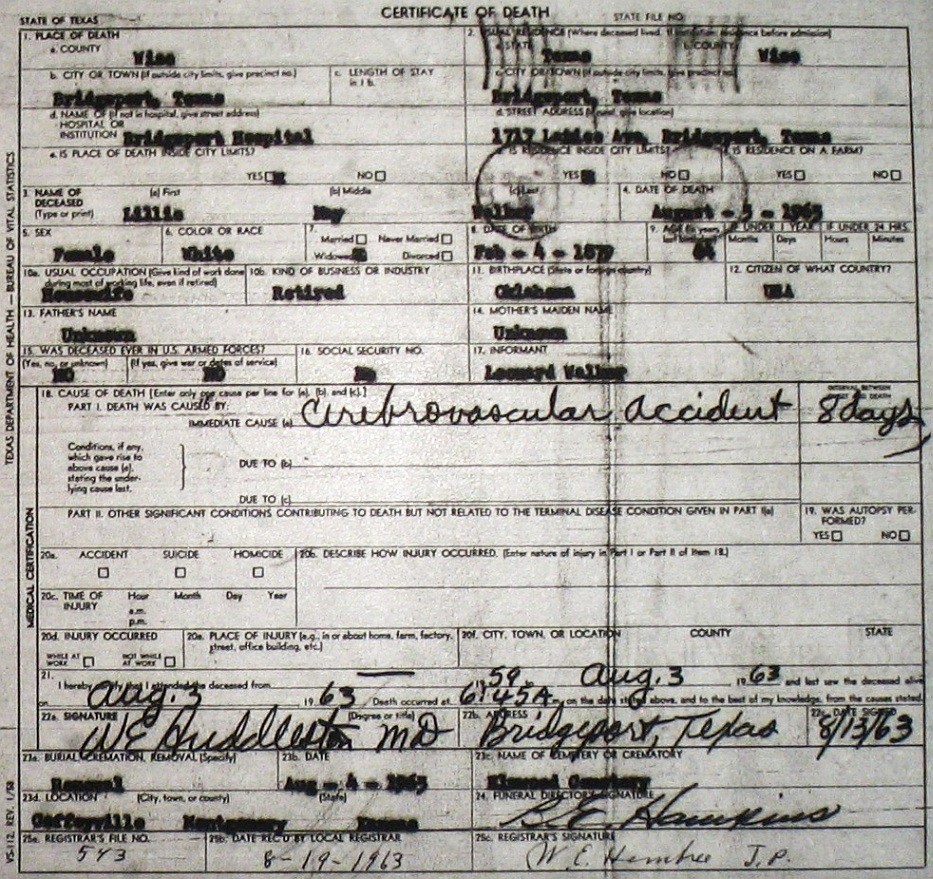 CERTIFICATE OF DEATH
STATE OF TEXAS
STATE FILE NO.
1. PLACE OF DEATH
a. COUNTY
Wise
2. USUAL RESIDENCE (Where deceased lived. If institution: residence before admission)
a. STATE
Texas
b. COUNTY
Wise
b. CITY OR TOWN (If outside city limits, give precinct no.)
Bridgeport, Texas
c. LENGTH OF STAY
in 1 b.
c. CITY OR TOWN (If outside city limits, give precinct no.)
Bridgeport, Texas
d. NAME OF (If not in hospital, give street address)
HOSPITAL OR
INSTITUTION Bridgeport Hospital
d. STREET ADDRESS (If rural, give location)
1717 Ave, Bridgeport, Texas
e. IS PLACE OF DEATH INSIDE CITY LIMITS?
YES NO
e. IS RESIDENCE INSIDE CITY LIMITS?
YES NO
f. IS RESIDENCE ON A FARM?
YES NO
3. NAME OF
DECEASED
(Type or print)
(a) First
Lillie
(b) Middle
May
(c) Last
Walker
4. DATE OF DEATH
August
5. SEX
Female
6. COLOR OR RACE
White
7.
Married Never Married
Widowed Divorced
8. DATE OF BIRTH
Feb - 4 - 1879
9. AGE (In years
last birthday)
84
IF UNDER 1 YEAR
Months Days
IF UNDER 24 HRS.
Hours Minutes
10a. USUAL OCCUPATION (Give kind of work done
during most of working life, even if retired)
Housewife
10b. KIND OF BUSINESS OR INDUSTRY
Retired
11. BIRTHPLACE (State or foreign country)
Oklahoma
12. CITIZEN OF WHAT COUNTRY?
USA
13. FATHER'S NAME
Unknown
14. MOTHER'S MAIDEN NAME
Unknown
15. WAS DECEASED EVER IN U.S. ARMED FORCES?
(Yes, no, or unknown)
NO
(If yes, give war or dates of service)
NO
16. SOCIAL SECURITY NO.
No
17. INFORMANT
Leonard Walker
18. CAUSE OF DEATH [Enter only one cause per line for (a), (b), and (c).]
PART I. DEATH WAS CAUSED BY:
IMMEDIATE CAUSE (a) Cerebrovascular accident
INTERVAL BETWEEN
8 days
Conditions, if any,
which gave rise to
above cause (a),
stating the under-
lying cause last.
DUE TO (b)
DUE TO (c)
PART II. OTHER SIGNIFICANT CONDITIONS CONTRIBUTING TO DEATH BUT NOT RELATED TO THE TERMINAL DISEASE CONDITION GIVEN IN PART I(a)
19. WAS AUTOPSY PER-
FORMED?
YES NO
20a. ACCIDENT SUICIDE HOMICIDE
20b. DESCRIBE HOW INJURY OCCURRED. (Enter nature of injury in Part I or Part II of Item 18.)
20c. TIME OF
INJURY
Hour Month Day Year
a.m.
p.m.
20d. INJURY OCCURRED
WHILE AT
WORK
NOT WHILE
AT WORK
20e. PLACE OF INJURY (e.g., in or about home, farm, factory,
street, office building, etc.)
20f. CITY, TOWN, OR LOCATION COUNTY STATE
21.
I hereby certify that I attended the deceased from — 19 59 to Aug. 3 19 63 and last saw the deceased alive
on Aug. 3 19 63 Death occurred at 6:45A m. on the date stated above, and to the best of my knowledge, from the causes stated.
22a. SIGNATURE (Degree or title)
W E Huddleston MD
22b. ADDRESS
Bridgeport, Texas
22c. DATE SIGNED
8/13/63
23a. BURIAL, CREMATION, REMOVAL (Specify)
Removal
23b. DATE
Aug - 4 - 1963
23c. NAME OF CEMETERY OR CREMATORY
Elmwood Cemetery
23d. LOCATION (City, town, or county) (State)
Coffeyville Montgomery Kansas
24. FUNERAL DIRECTOR'S SIGNATURE
B. E. Hawkins
25a. REGISTRAR'S FILE NO.
543
25b. DATE REC'D BY LOCAL REGISTRAR
8-19-1963
25c. REGISTRAR'S SIGNATURE
W. E. Hembree J.P.
TEXAS DEPARTMENT OF HEALTH — BUREAU OF VITAL STATISTICS
MEDICAL CERTIFICATION
VS-112, REV. 1/58